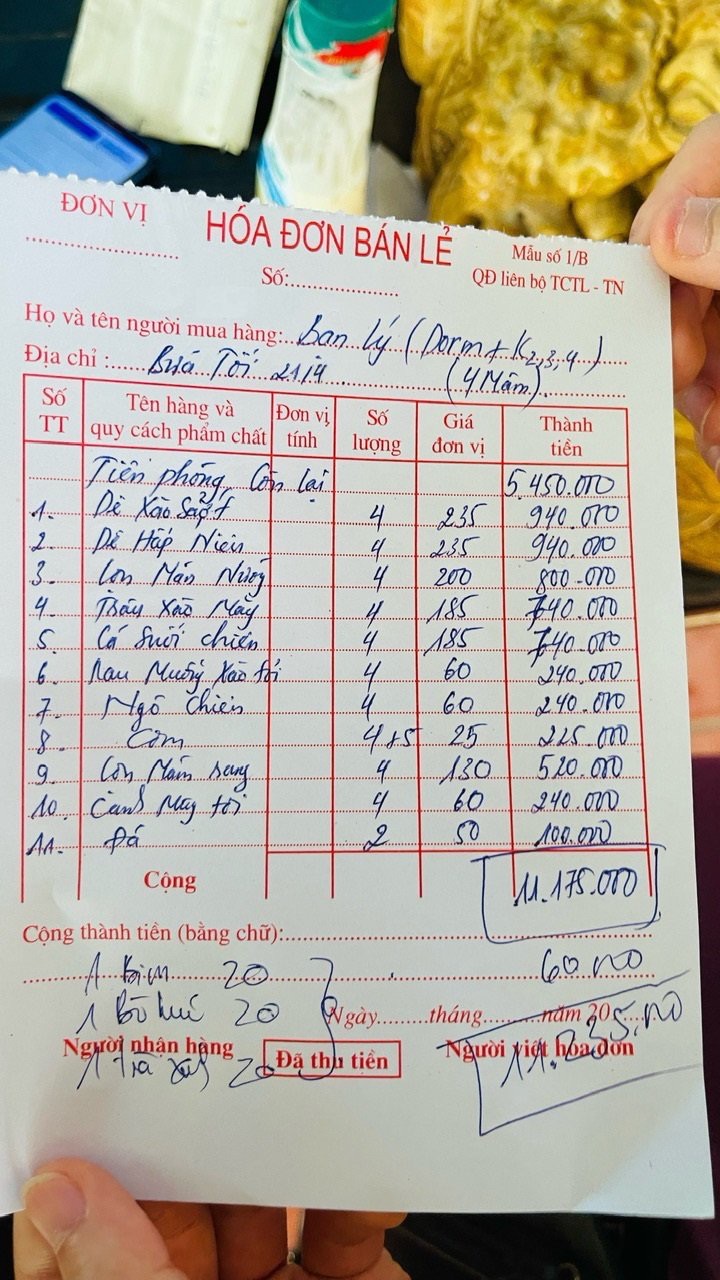 ĐƠN VỊ
HÓA ĐƠN BÁN LẺ
Mẫu số 1/B
Số:
QĐ liên bộ TCTL - TN
Họ và tên người mua hàng: Ban lý (Dorm + K2,3,4)
Địa chỉ: Bữa Tối 21/4 (4 Mâm)
Số TT Tên hàng và quy cách phẩm chất Đơn vị tính Số lượng Giá đơn vị Thành tiền
Tiền phòng Còn lại 5.450.000
1. Dê Xào Sả ớt 4 235 940.000
2. Dê Hấp 4 235 940.000
3. Lợn Mán Nướng 4 200 800.000
4. Trâu Xào Măng 4 185 740.000
5. Cá Suối chiên 4 185 740.000
6. Rau Muống Xào tỏi 4 60 240.000
7. Ngô Chiên 4 60 240.000
8. Cơm 4+5 25 225.000
9. Lợn rang 4 130 520.000
10. Canh 4 60 240.000
11. Đá 2 50 100.000
Cộng 11.175.000
Cộng thành tiền (bằng chữ):
1 bim 20 60.000
1 Bò 20
Ngày tháng năm 20
Người nhận hàng Đã thu tiền Người viết hóa đơn
1 Trà 20 11.235.000